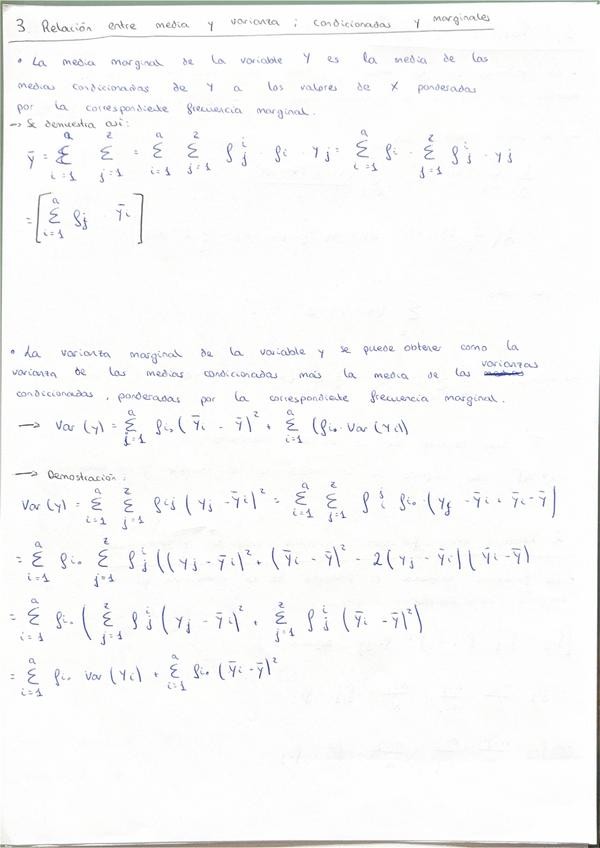 3 Relación entre media y varianza; condicionadas y marginales
• La media marginal de la variable Y es la media de las
medias condicionadas de Y a los valores de X ponderadas
por la correspondiente frecuencia marginal.
→ Se demuestra así:
ȳ = Σ_{i=1}^{a} Σ_{j=1}^{z} = Σ_{i=1}^{a} Σ_{j=1}^{z} f_j^i · f_i · y_j = Σ_{i=1}^{a} f_i · Σ_{j=1}^{z} f_j^i · y_j
= [Σ_{i=1}^{a} f_j · ȳ_i]
• La varianza marginal de la variable y se puede obtener como la
varianza de las medias condicionadas más la media de las varianzas
condicionadas, ponderadas por la correspondiente frecuencia marginal.
→ Var (y) = Σ_{j=1}^{a} f_{i•} (ȳ_i - ȳ)² + Σ_{i=1}^{a} (f_{i•} · Var (y_i))
→ Demostración:
Var (y) = Σ_{i=1}^{a} Σ_{j=1}^{z} f_{ij} (y_j - ȳ_i)² = Σ_{i=1}^{a} Σ_{j=1}^{z} f_j^i f_{i•} (y_j - ȳ_i + ȳ_i - ȳ)
= Σ_{i=1}^{a} f_{i•} Σ_{j=1}^{z} f_j^i ((y_j - ȳ_i)² + (ȳ_i - ȳ)² - 2(y_j - ȳ_i)(ȳ_i - ȳ)
= Σ_{i=1}^{a} f_{i•} (Σ_{j=1}^{z} f_j^i (y_j - ȳ_i)² + Σ_{j=1}^{z} f_j^i (ȳ_i - ȳ)²)
= Σ_{i=1}^{a} f_{i•} Var (y_i) + Σ_{i=1}^{a} f_{i•} (ȳ_i - ȳ)²